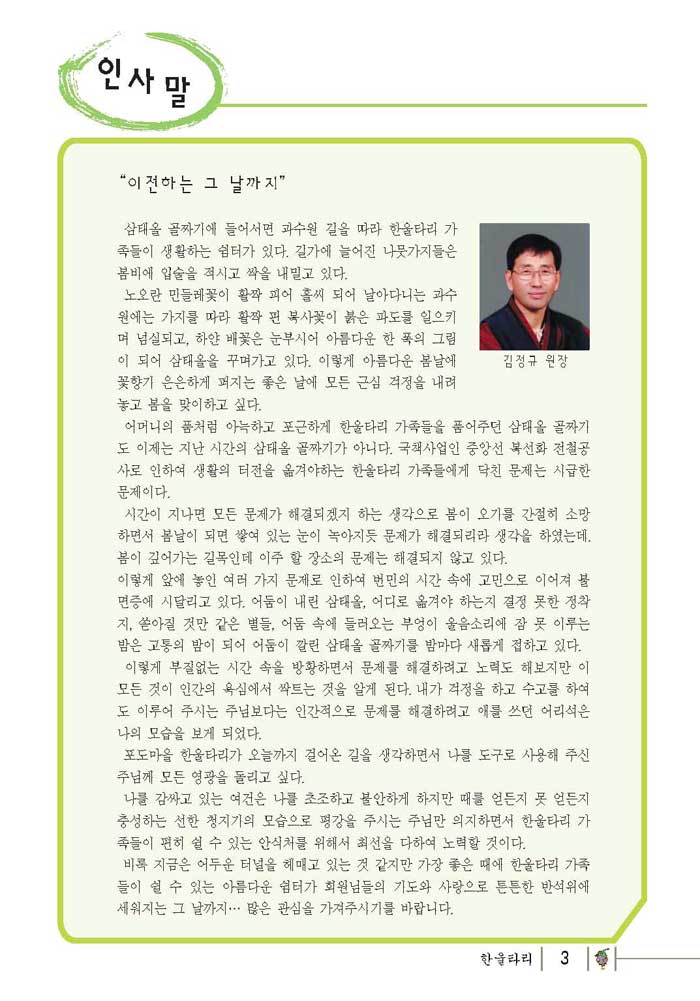 인사말
“이전하는 그 날까지”
삼태울 골짜기에 들어서면 과수원 길을 따라 한울타리 가
족들이 생활하는 쉼터가 있다. 길가에 늘어진 나뭇가지들은
봄비에 입술을 적시고 싹을 내밀고 있다.
노오란 민들레꽃이 활짝 피어 홀씨 되어 날아다니는 과수
원에는 가지를 따라 활짝 핀 복사꽃이 붉은 파도를 일으키
며 넘실되고, 하얀 배꽃은 눈부시어 아름다운 한 폭의 그림
이 되어 삼태울을 꾸며가고 있다. 이렇게 아름다운 봄날에
꽃향기 은은하게 퍼지는 좋은 날에 모든 근심 걱정을 내려
놓고 봄을 맞이하고 싶다.
김정규 원장
어머니의 품처럼 아늑하고 포근하게 한울타리 가족들을 품어주던 삼태울 골짜기
도 이제는 지난 시간의 삼태울 골짜기가 아니다. 국책사업인 중앙선 복선화 전철공
사로 인하여 생활의 터전을 옮겨야하는 한울타리 가족들에게 닥친 문제는 시급한
문제이다.
시간이 지나면 모든 문제가 해결되겠지 하는 생각으로 봄이 오기를 간절히 소망
하면서 봄날이 되면 쌓여 있는 눈이 녹아지듯 문제가 해결되리라 생각을 하였는데.
봄이 깊어가는 길목인데 이주 할 장소의 문제는 해결되지 않고 있다.
이렇게 앞에 놓인 여러 가지 문제로 인하여 번민의 시간 속에 고민으로 이어져 불
면증에 시달리고 있다. 어둠이 내린 삼태울, 어디로 옮겨야 하는지 결정 못한 정착
지, 쏟아질 것만 같은 별들, 어둠 속에 들러오는 부엉이 울음소리에 잠 못 이루는
밤은 고통의 밤이 되어 어둠이 깔린 삼태울 골짜기를 밤마다 새롭게 접하고 있다.
이렇게 부질없는 시간 속을 방황하면서 문제를 해결하려고 노력도 해보지만 이
모든 것이 인간의 욕심에서 싹트는 것을 알게 된다. 내가 걱정을 하고 수고를 하여
도 이루어 주시는 주님보다는 인간적으로 문제를 해결하려고 애를 쓰던 어리석은
나의 모습을 보게 되었다.
포도마을 한울타리가 오늘까지 걸어온 길을 생각하면서 나를 도구로 사용해 주신
주님께 모든 영광을 돌리고 싶다.
나를 감싸고 있는 여건은 나를 초조하고 불안하게 하지만 때를 얻든지 못 얻든지
충성하는 선한 청지기의 모습으로 평강을 주시는 주님만 의지하면서 한울타리 가
족들이 편히 쉴 수 있는 안식처를 위해서 최선을 다하여 노력할 것이다.
비록 지금은 어두운 터널을 헤매고 있는 것 같지만 가장 좋은 때에 한울타리 가족
들이 쉴 수 있는 아름다운 쉼터가 회원님들의 기도와 사랑으로 튼튼한 반석위에
세워지는 그 날까지… 많은 관심을 가져주시기를 바랍니다.
한울타리 3